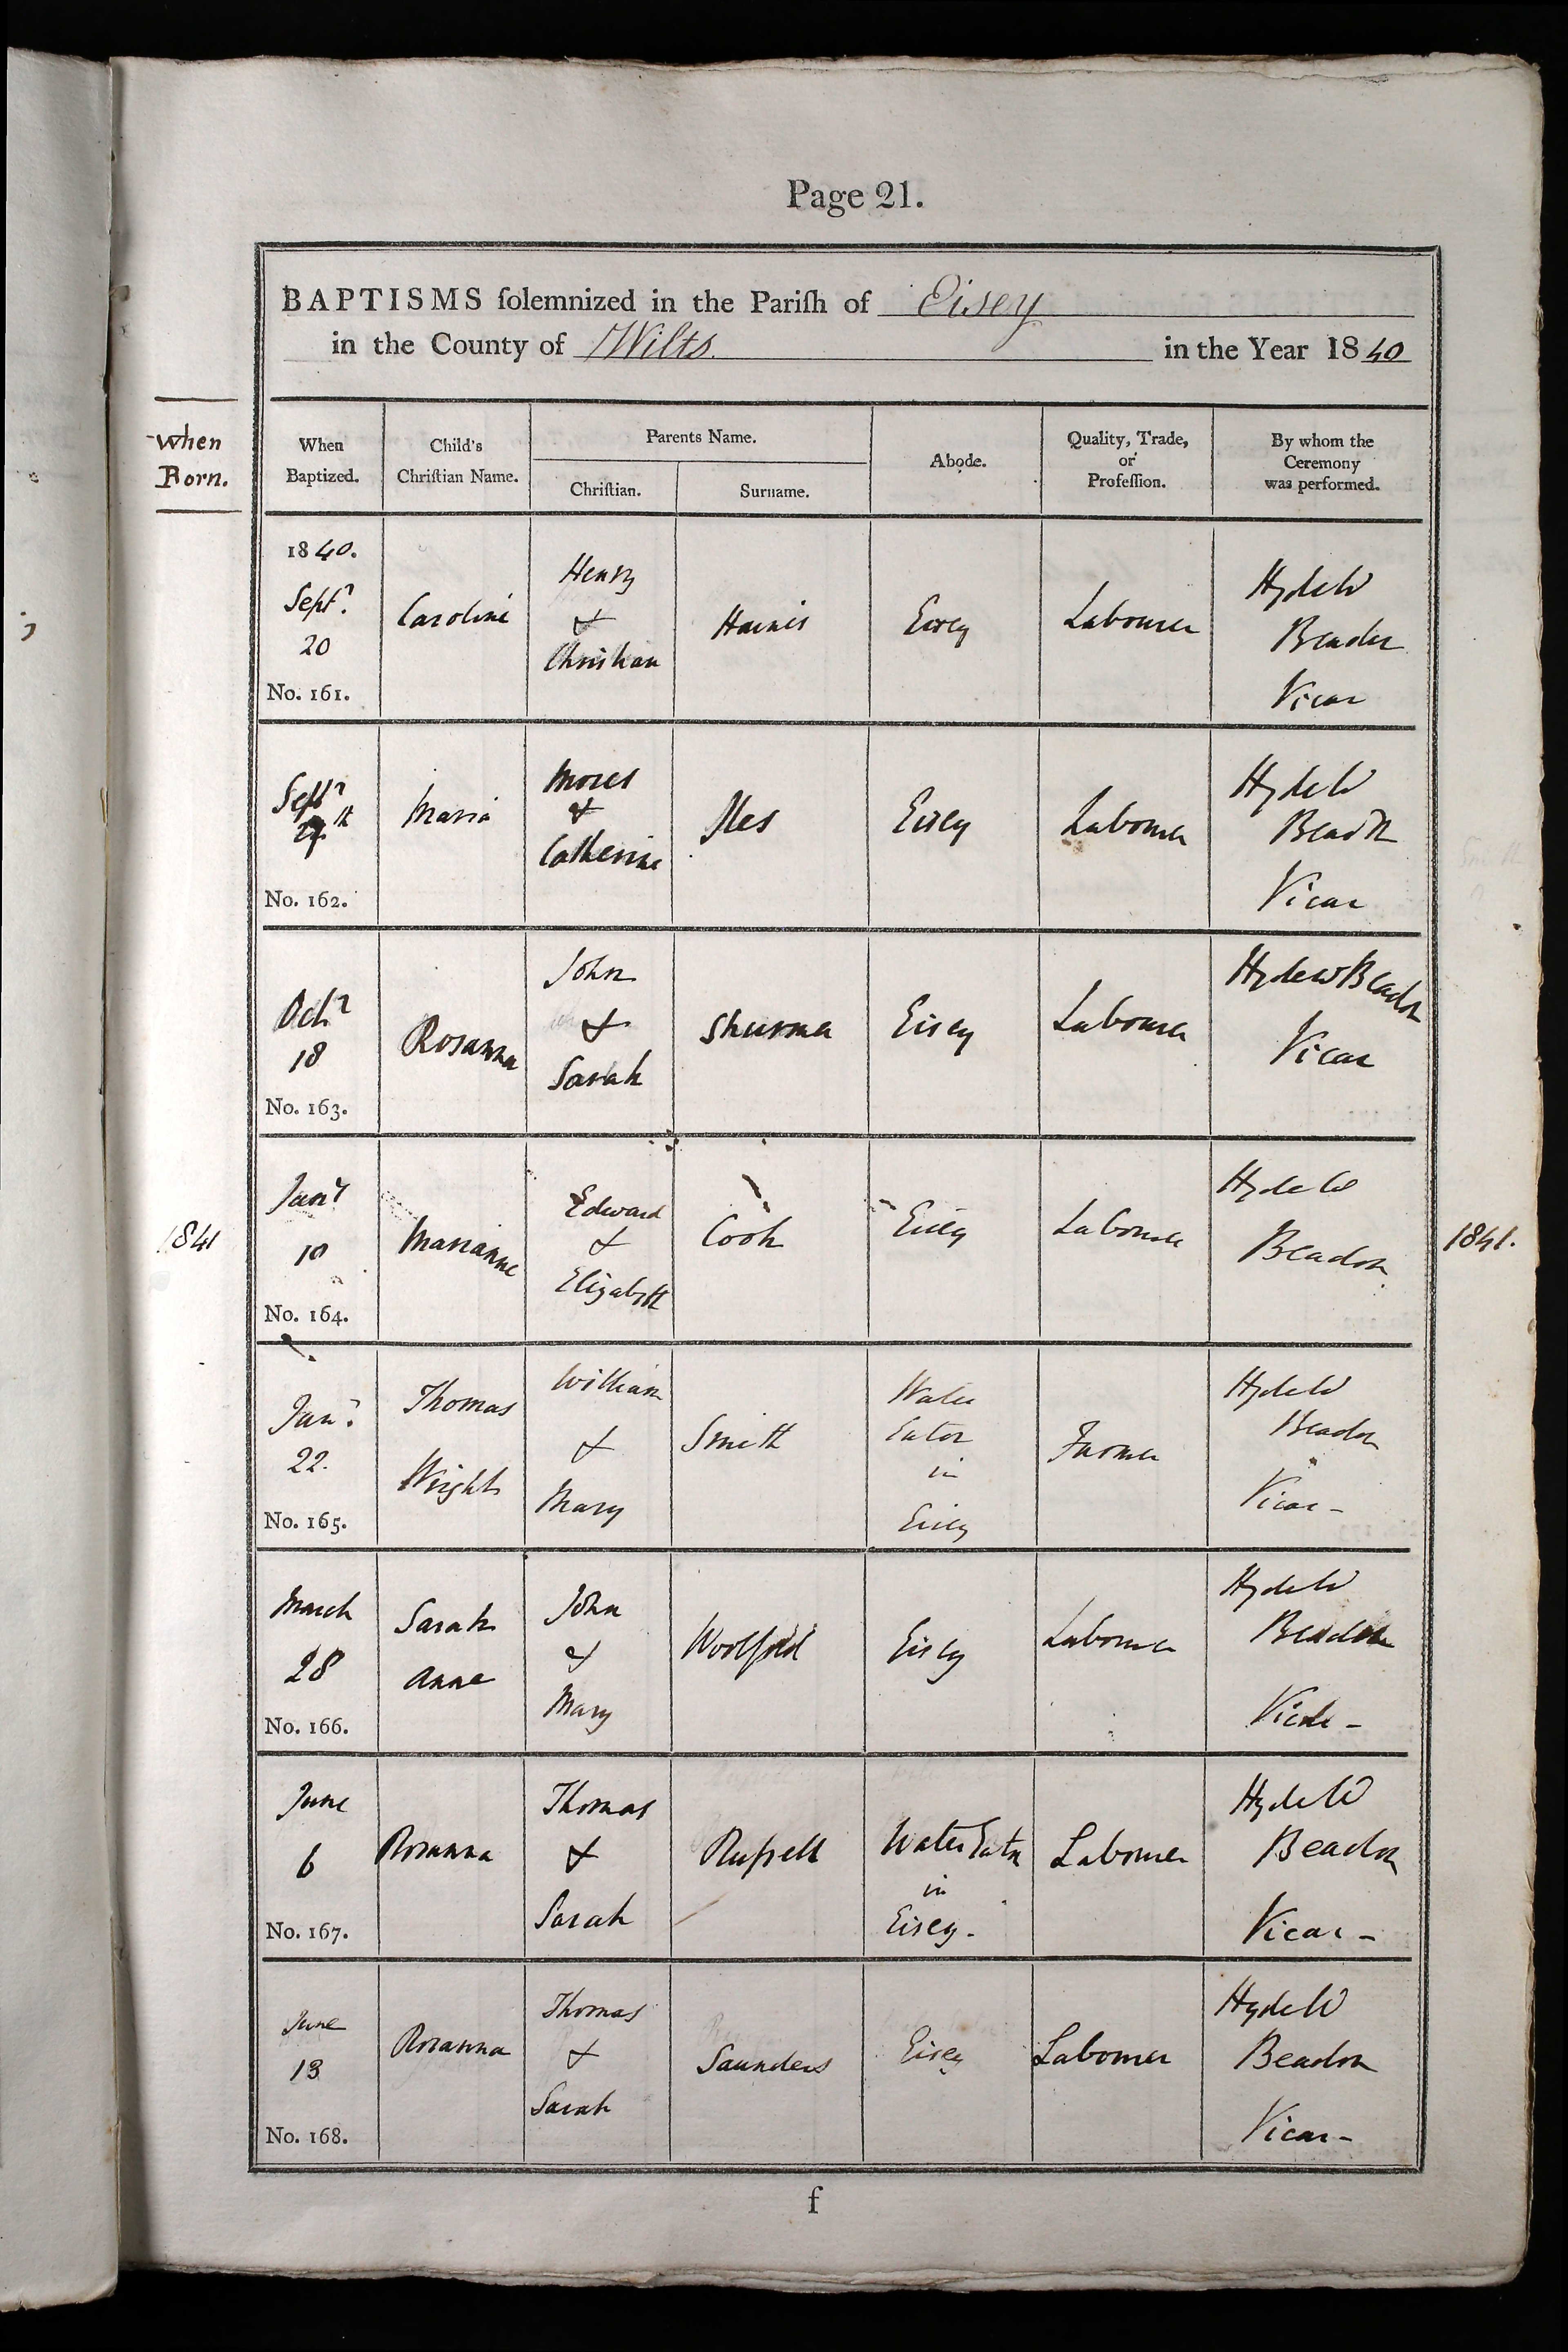 Page 21.
BAPTISMS ſolemnized in the Pariſh of Eisey
in the County of Wilts in the Year 1840
When
Born.
When
Baptized.
Child's
Chriſtian Name.
Parents Name.
Chriſtian.
Surname.
Abode.
Quality, Trade,
or
Profeſſion.
By whom the
Ceremony
was performed.
1840.
Septr.
20
No. 161.
Caroline
Henry
&
Christian
Eisey
Labourer
Hyde W
Beadon
Vicar
Septr
th
No. 162.
Maria
Moses
&
Catherine
Iles
Eisey
Labourer
Hyde W
Beadon
Vicar
Octr
18
No. 163.
Rosanna
John
&
Sarah
Eisey
Labourer
Hyde W Beadon
Vicar
1841
Jany
10
No. 164.
Marianne
Edward
&
Elizabeth
Cook
Eisey
Labourer
Hyde W
Beadon
1841.
Jany.
22.
No. 165.
Thomas
Wright
William
&
Mary
Smith
Water
Eaton
in
Eisey
Farmer
Hyde W
Beadon
Vicar -
March
28
No. 166.
Sarah
Anne
John
&
Mary
Woolford
Eisey
Labourer
Hyde W
Beadon
Vicar -
June
6
No. 167.
Rosanna
Thomas
&
Sarah
Ruſsell
Water Eaton
in
Eisey.
Labourer
Hyde W
Beadon
Vicar -
June
13
No. 168.
Rosanna
Thomas
&
Sarah
Saunders
Eisey
Labourer
Hyde W
Beadon
Vicar -
f